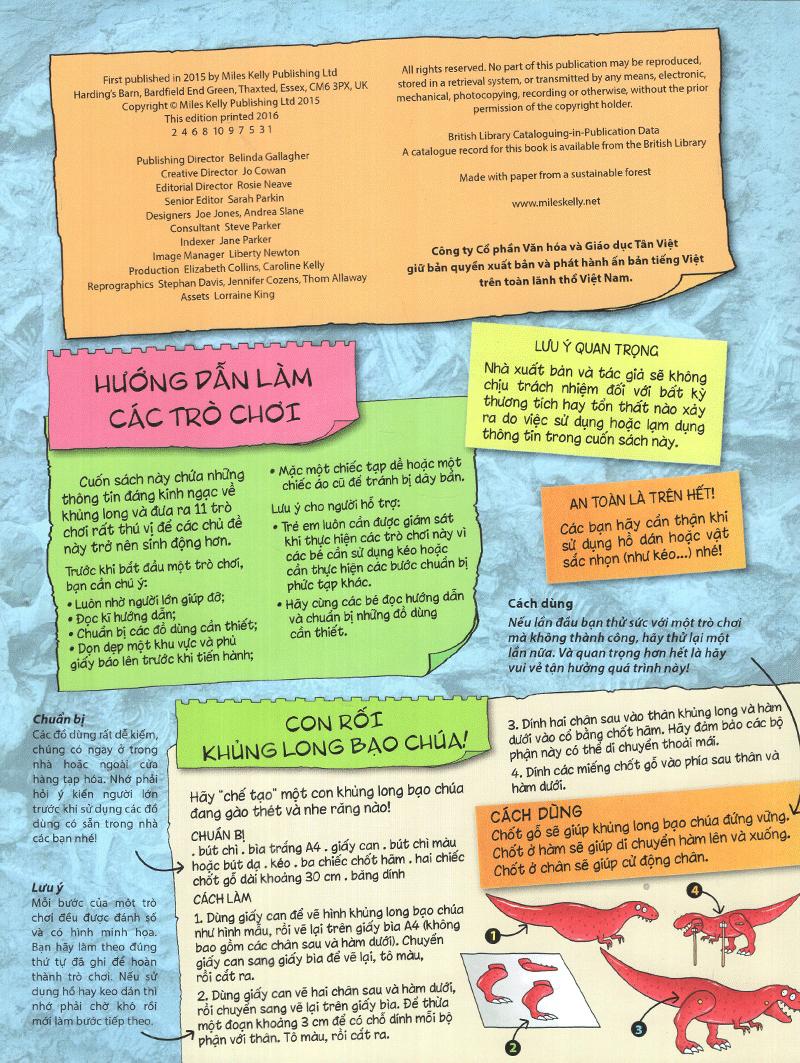 First published in 2015 by Miles Kelly Publishing Ltd
Harding's Barn, Bardfield End Green, Thaxted, Essex, CM6 3PX, UK
Copyright © Miles Kelly Publishing Ltd 2015
This edition printed 2016
2 4 6 8 10 9 7 5 3 1
Publishing Director Belinda Gallagher
Creative Director Jo Cowan
Editorial Director Rosie Neave
Senior Editor Sarah Parkin
Designers Joe Jones, Andrea Slane
Consultant Steve Parker
Indexer Jane Parker
Image Manager Liberty Newton
Production Elizabeth Collins, Caroline Kelly
Reprographics Stephan Davis, Jennifer Cozens, Thom Allaway
Assets Lorraine King
All rights reserved. No part of this publication may be reproduced,
stored in a retrieval system, or transmitted by any means, electronic,
mechanical, photocopying, recording or otherwise, without the prior
permission of the copyright holder.
British Library Cataloguing-in-Publication Data
A catalogue record for this book is available from the British Library
Made with paper from a sustainable forest
www.mileskelly.net
Công ty Cổ phần Văn hóa và Giáo dục Tân Việt
giữ bản quyền xuất bản và phát hành ấn bản tiếng Việt
trên toàn lãnh thổ Việt Nam.
HƯỚNG DẪN LÀM
CÁC TRÒ CHƠI
Cuốn sách này chứa những
thông tin đáng kinh ngạc về
khủng long và đưa ra 11 trò
chơi rất thú vị để các chủ đề
này trở nên sinh động hơn.
Trước khi bắt đầu một trò chơi,
bạn cần chú ý:
• Luôn nhờ người lớn giúp đỡ;
• Đọc kĩ hướng dẫn;
• Chuẩn bị các đồ dùng cần thiết;
• Dọn dẹp một khu vực và phủ
giấy báo lên trước khi tiến hành;
• Mặc một chiếc tạp dề hoặc một
chiếc áo cũ để tránh bị dây bẩn.
Lưu ý cho người hỗ trợ:
• Trẻ em luôn cần được giám sát
khi thực hiện các trò chơi này vì
các bé cần sử dụng kéo hoặc
cần thực hiện các bước chuẩn bị
phức tạp khác.
• Hãy cùng các bé đọc hướng dẫn
và chuẩn bị những đồ dùng
cần thiết.
LƯU Ý QUAN TRỌNG
Nhà xuất bản và tác giả sẽ không
chịu trách nhiệm đối với bất kỳ
thương tích hay tổn thất nào xảy
ra do việc sử dụng hoặc lạm dụng
thông tin trong cuốn sách này.
AN TOÀN LÀ TRÊN HẾT!
Các bạn hãy cẩn thận khi
sử dụng hồ dán hoặc vật
sắc nhọn (như kéo...) nhé!
Cách dùng
Nếu lần đầu bạn thử sức với một trò chơi
mà không thành công, hãy thử lại một
lần nữa. Và quan trọng hơn hết là hãy
vui vẻ tận hưởng quá trình này!
Chuẩn bị
Các đồ dùng rất dễ kiếm,
chúng có ngay ở trong
nhà hoặc ngoài cửa
hàng tạp hóa. Nhớ phải
hỏi ý kiến người lớn
trước khi sử dụng các đồ
dùng có sẵn trong nhà
các bạn nhé!
Lưu ý
Mỗi bước của một trò
chơi đều được đánh số
và có hình minh họa.
Bạn hãy làm theo đúng
thứ tự đã ghi để hoàn
thành trò chơi. Nếu sử
dụng hồ hay keo dán thì
nhớ phải chờ khô rồi
mới làm bước tiếp theo.
CON RỐI
KHỦNG LONG BẠO CHÚA!
Hãy "chế tạo" một con khủng long bạo chúa
đang gào thét và nhe răng nào!
CHUẨN BỊ
. bút chì . bìa trắng A4 . giấy can . bút chì màu
hoặc bút dạ . kéo . ba chiếc chốt hãm . hai chiếc
chốt gỗ dài khoảng 30 cm . băng dính
CÁCH LÀM
1. Dùng giấy can để vẽ hình khủng long bạo chúa
như hình mẫu, rồi vẽ lại trên giấy bìa A4 (không
bao gồm các chân sau và hàm dưới). Chuyển
giấy can sang giấy bìa để vẽ lại, tô màu,
rồi cắt ra.
2. Dùng giấy can vẽ hai chân sau và hàm dưới,
rồi chuyển sang vẽ lại trên giấy bìa. Để thừa
một đoạn khoảng 3 cm để có chỗ dính mỗi bộ
phận với thân. Tô màu, rồi cắt ra.
3. Dính hai chân sau vào thân khủng long và hàm
dưới vào cổ bằng chốt hãm. Hãy đảm bảo các bộ
phận này có thể di chuyển thoải mái.
4. Dính các miếng chốt gỗ vào phía sau thân và
hàm dưới.
CÁCH DÙNG
Chốt gỗ sẽ giúp khủng long bạo chúa đứng vững.
Chốt ở hàm sẽ giúp di chuyển hàm lên và xuống.
Chốt ở chân sẽ giúp cử động chân.
1
4
2
3